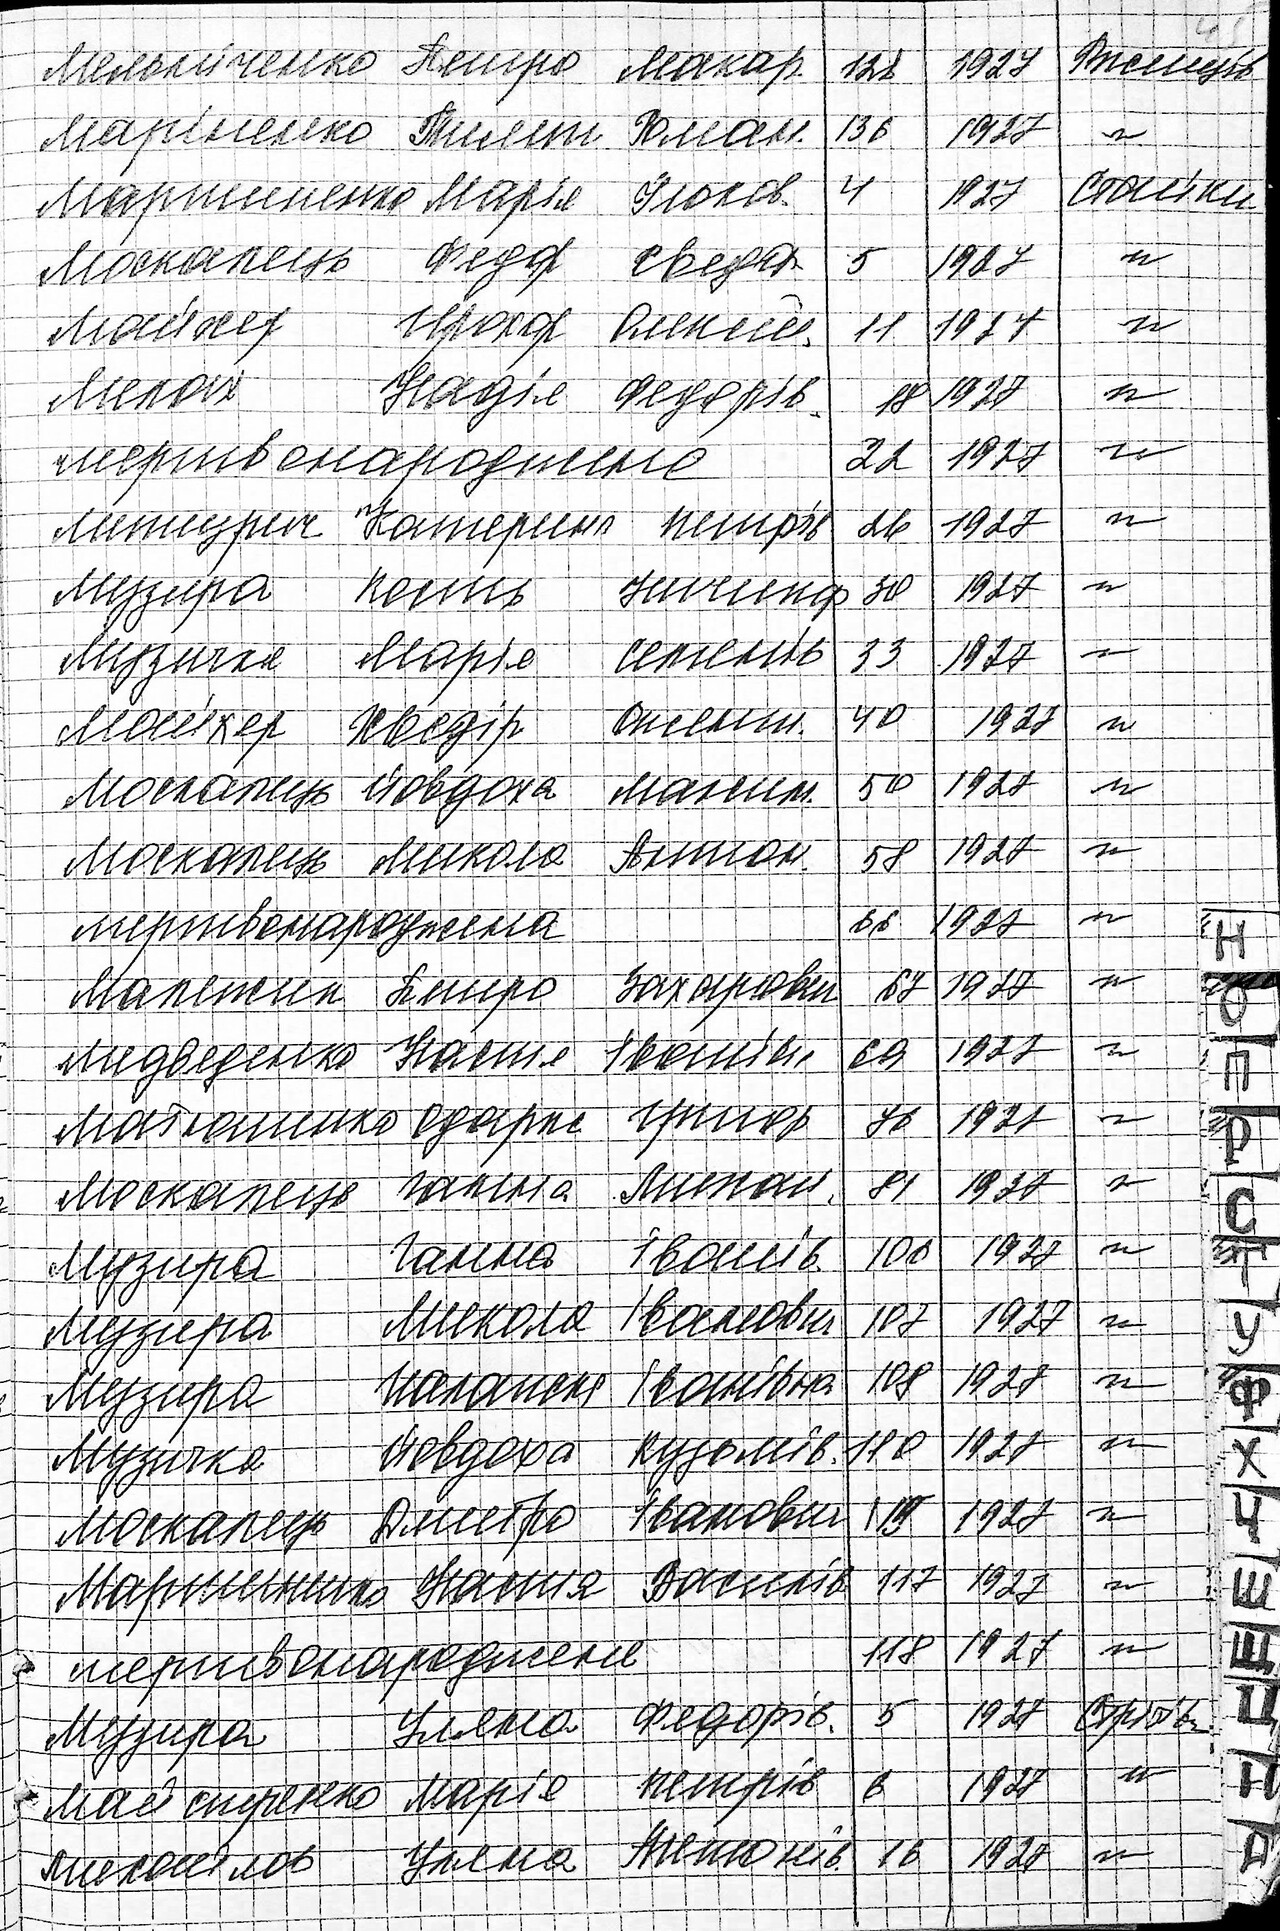 Мельніченко Петро Макар. 128 1927 Ржищів
Маріненко Пилип Роман. 136 1927 "
Мартиненко Марія Яков. 4 1927 Стайки
Москалець Федор Сведор 5 1927 "
Майхер Прохор Олексій. 11 1927 "
Надія Федорів. 18 1927 "
мертвонароджене 22 1927 "
Катерина Петрів 26 1927 "
Музира Кость Никифор 30 1927 "
Музичка Марія Семенів 33 1927 "
Майхер Хведір 40 1927 "
Москалець Йовдоха Максим. 50 1927 "
Москалець Микола Антон. 58 1927 "
мертвонароджена 66 1927 "
Малежик Петро Захарович 67 1927 "
Медведенко Настя Іванівн 69 1927 "
Матюшенко Одарка Григор 76 1927 "
Москалець Ганна Михай. 81 1927 "
Музира Ганна Іванів. 106 1927 "
Музира Микола Іванович 107 1927 "
Музира Палажка Іванівна 108 1927 "
Музичка Йовдоха Кузьмів. 110 1927 "
Москалець Дмитро Іванович 115 1927 "
Мартиненко Настя Василів 117 1927 "
мертвонароджене 118 1927 "
Музира Уляна Федорів. 5 1927 Стрітів.
Майстренко Марія Петрів 6 1927 "
Михайлов Уляна Антонів. 16 1927 "
Н
О
П
Р
С
Т
У
Ф
Х
Ч
Ш
Щ
Ц